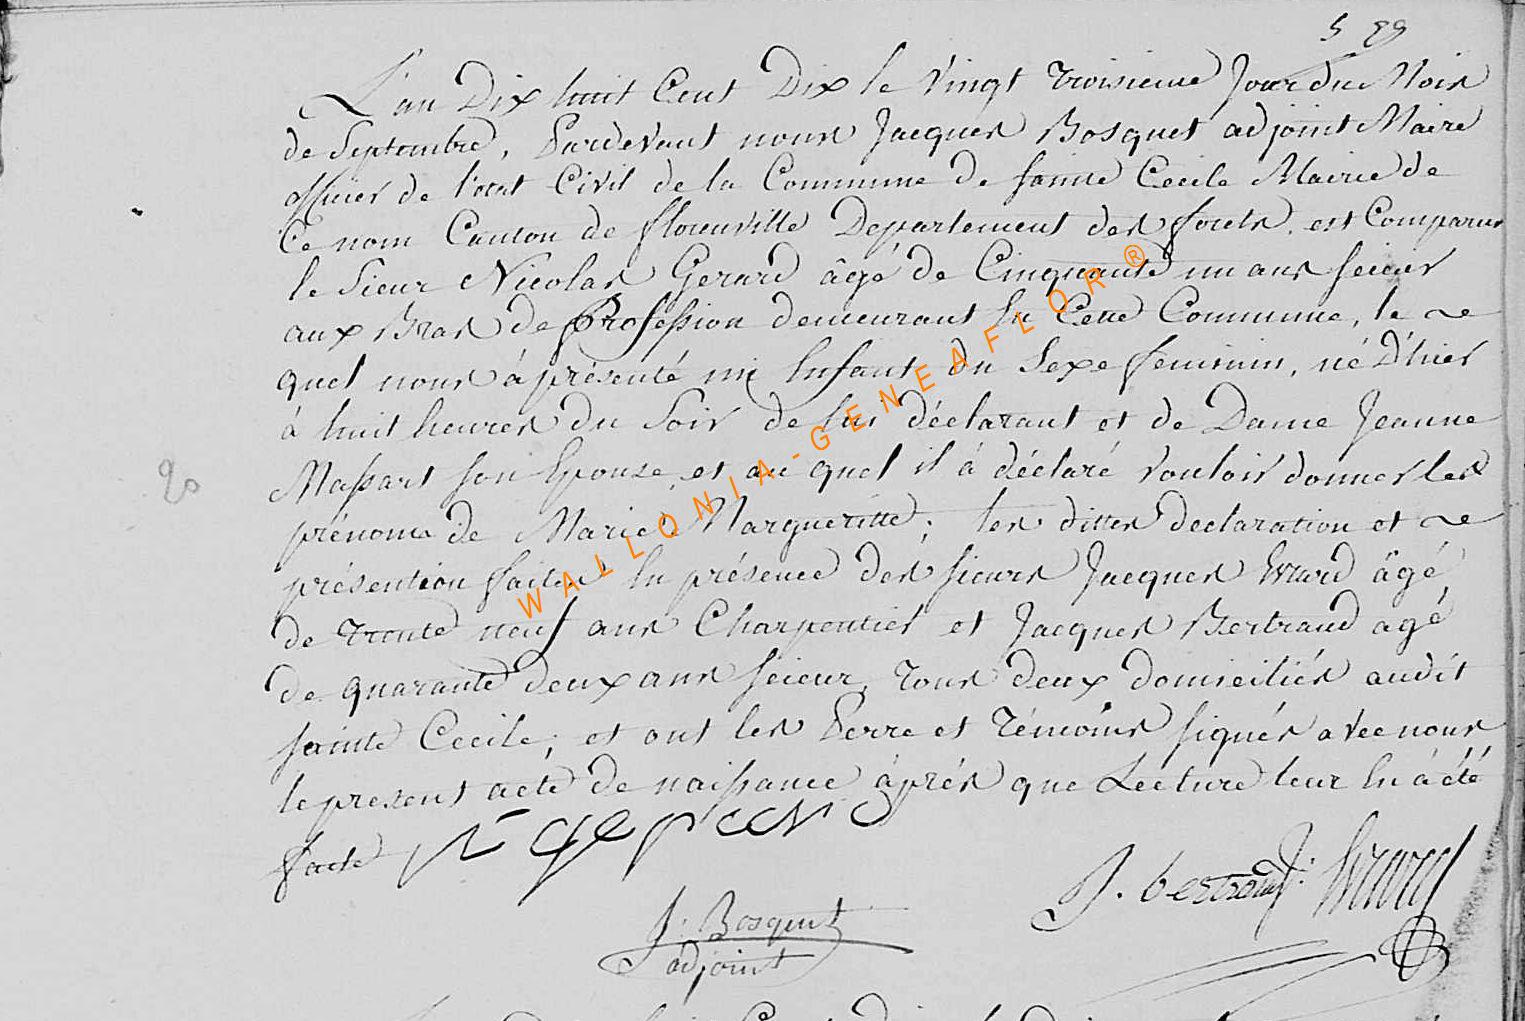 L'an Dix huit Cent Dix le Vingt Troisieme Jour du Mois
de Septembre, Pardevant nous Jacques Bosquet adjoint Maire
officier de l'etat Civil de la Commune de sainte Cecile Mairie de
Ce nom Canton de florenville Departement des forets. est Comparus
le Sieur Nicolas Gerard âgé de Cinquante un ans scieur
aux Bras de Profession demeurant En Cette Commune, le
quel nous à présenté un Enfant du Sexe feminin, né D'hier
à huit heures du Soir de lui déclarant et de Dame Jeanne
Massart son Epouse, et au quel il à déclaré vouloir donner les
prénoms de Marie Margueritte; les dittes declaration et
présention faites En présence des sieurs Jacques Evrard âgé
de Trente neuf ans Charpentier et Jacques Bertrand agé
de quarante deux ans scieur, Tous deux domiciliés audit
sainte Cecile; et ont les Perre et Témoins signés avec nous
le present acte de naissance àprés que Lecture leur En à été
faite
J. bertrand J: Evrard
J: Bosquet
adjoint
589
20
WALLONIA-GENEAFLOR®